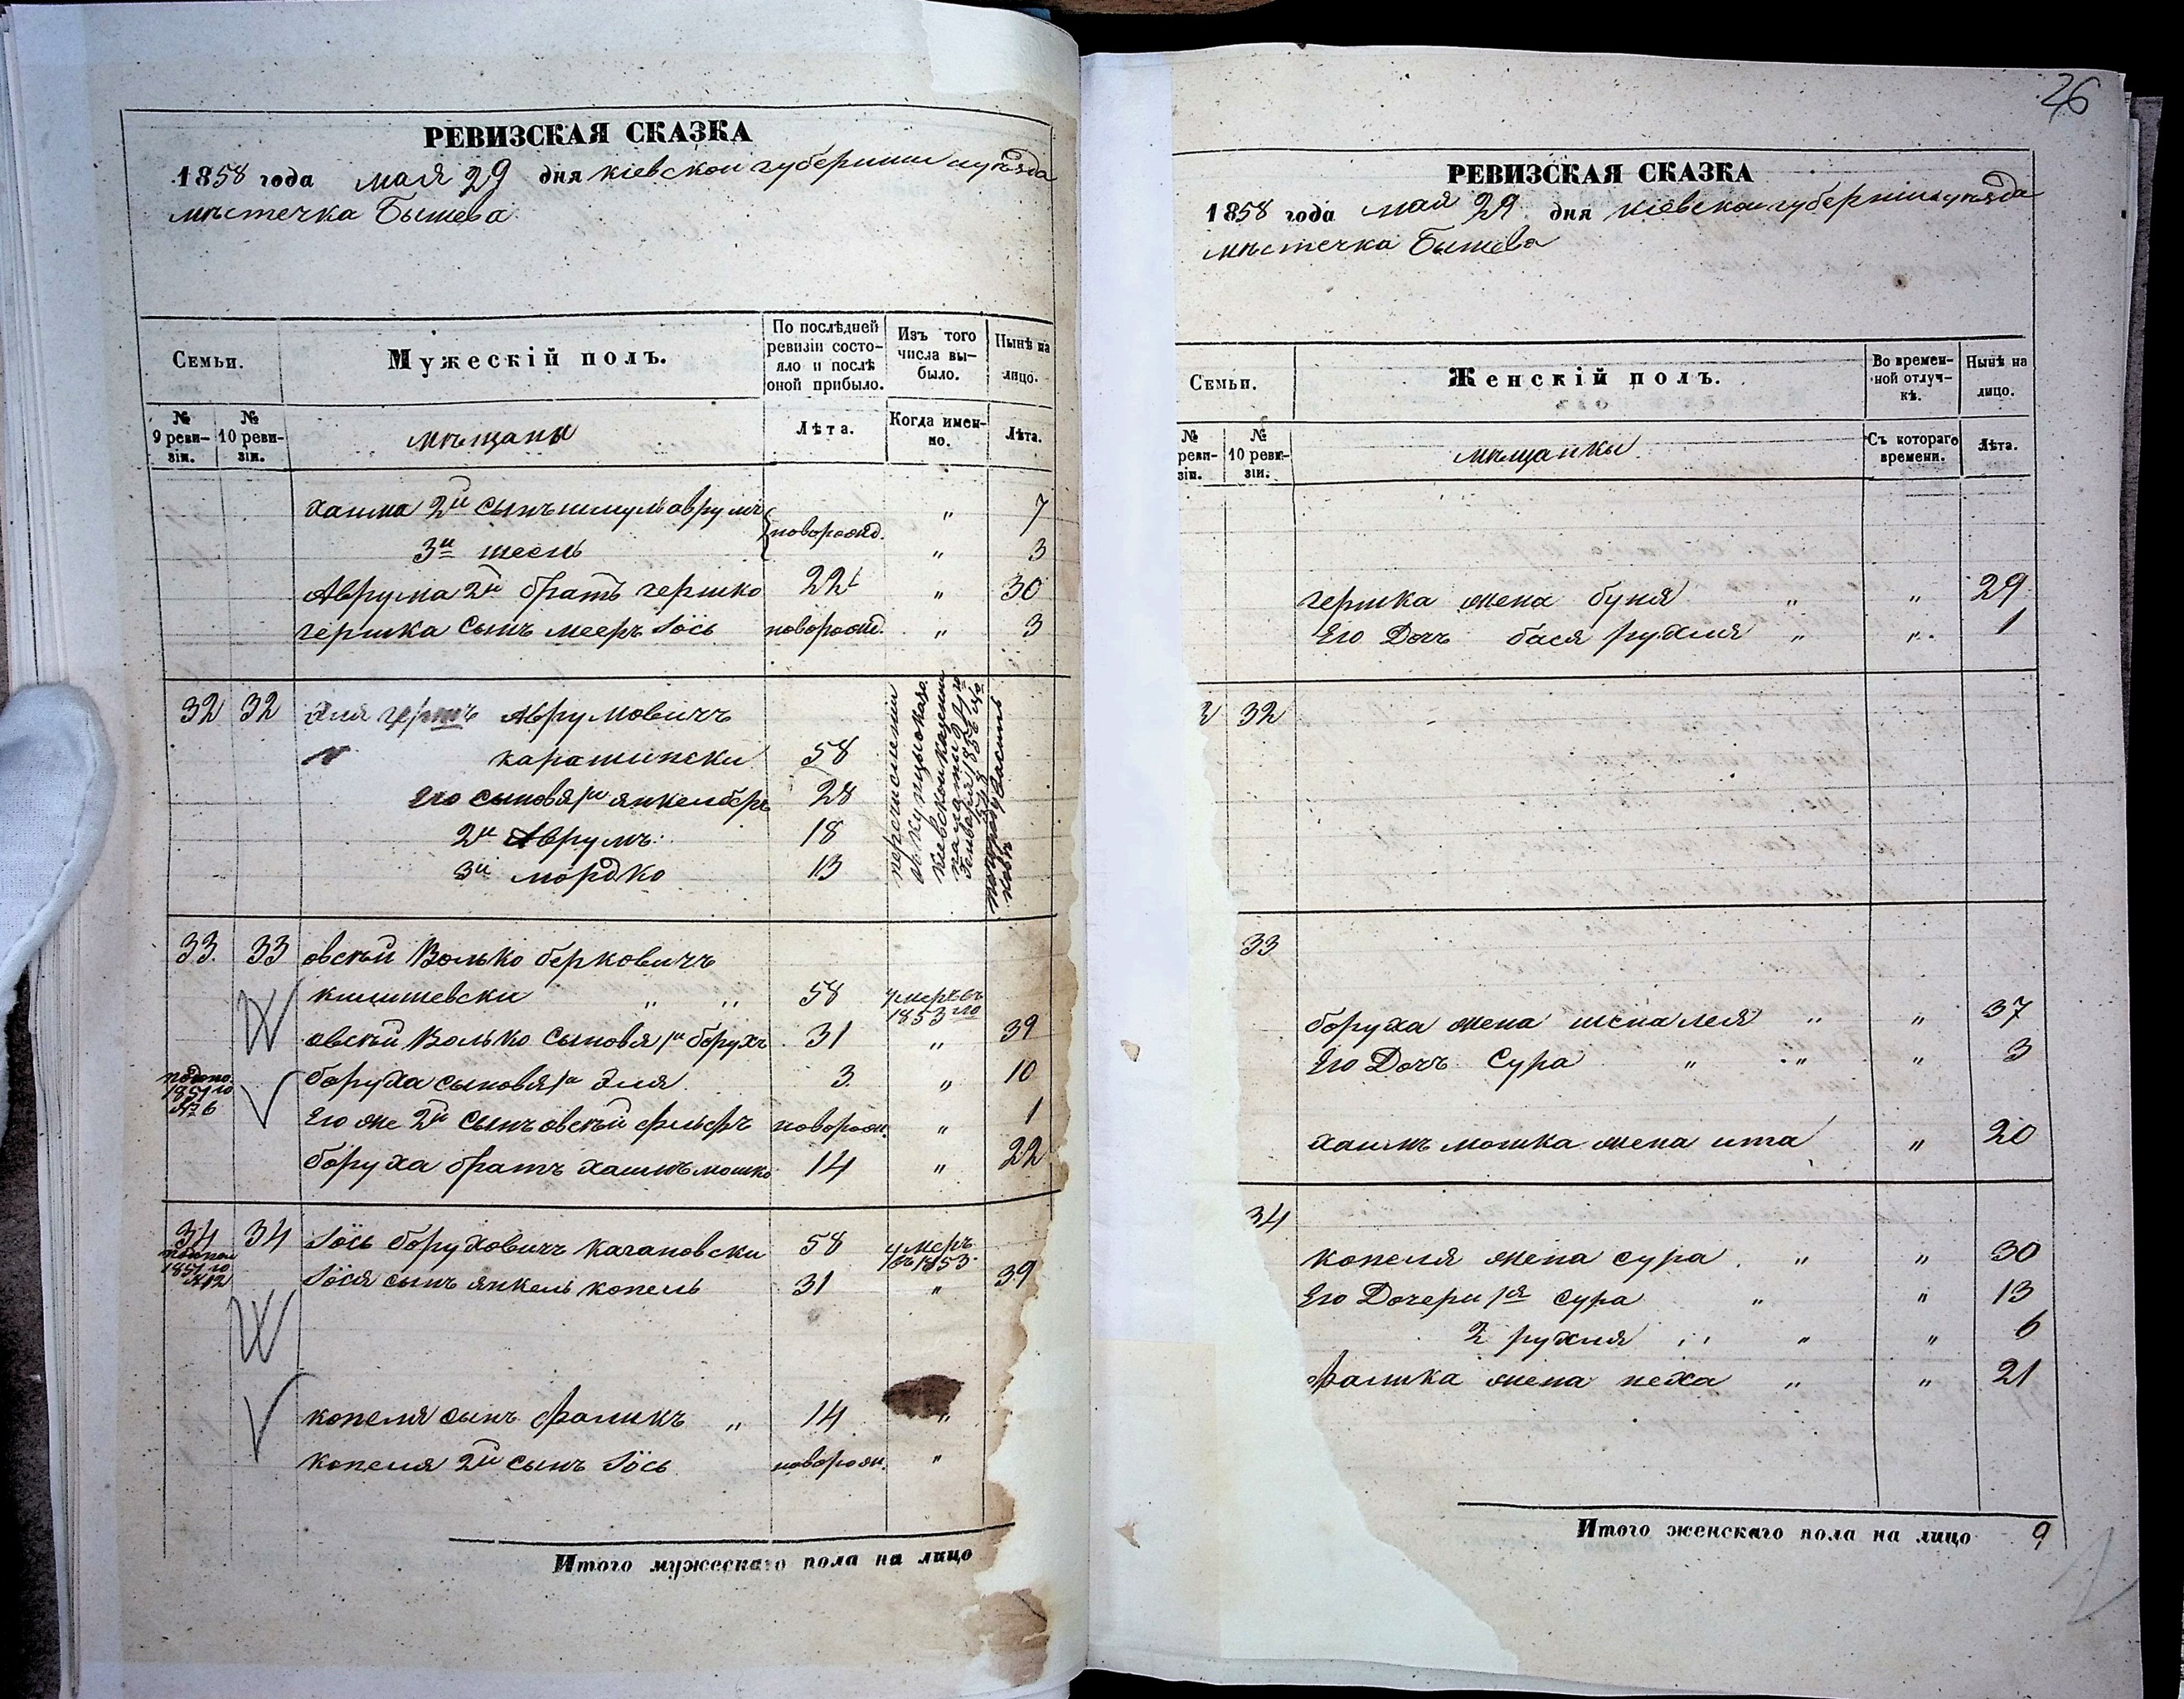 РЕВИЗСКАЯ СКАЗКА
1858 года мая 29 дня кіевской губерніи и уѣзда
мѣстечка Бышева
Семьи.
Мужескій полъ.
По послѣдней ревизіи состояло и послѣ оной прибыло.
Изъ того числа выбыло.
Нынѣ на лицо.
№ 9 ревизіи.
№ 10 ревизіи.
мѣщане
Лѣта.
Когда именно.
Лѣта.
хаима 2й сынъ шмуль аврумъ } новорожд. " 7
3й " 3
Аврума 2й братъ гершко 22 " 30
гершка сынъ мееръ Іось новорожд. " 3
32 32 Эля гершъ Аврумовичъ
карашински 58
Его сыновя 1й янкель беръ 28
2й Аврумъ 18
3й мордко 13
перечислении
33. 33 овсей Волько берковичъ
кишишевски " " 58 умеръ въ 1853 го
овсей Волько сыновя 1й борухъ 31 " 39
1851 го № 6 боруха сыновя 1й Эля 3 " 10
Его же 2й сынъ овсей новорож. " 1
боруха братъ хаимъ мошко 14 " 22
34 34 Іось Боруховичъ кагановски 58 умеръ въ 1853
1851 го № 12 Іося сынъ янкель копель 31 " 39
копеля сынъ фаликъ " 14 "
копеля 2й сынъ Іось новорож. "
Итого мужескаго пола на лицо
26
РЕВИЗСКАЯ СКАЗКА
1858 года мая 29 дня кіевской губерніи и уѣзда
мѣстечка Бышева
Семьи.
Женскій полъ.
Во временной отлучкѣ.
Нынѣ на лицо.
№ ревизіи.
№ 10 ревизіи.
мѣщанки
Съ котораго времени.
Лѣта.
гершка жена буня " " 29
Его Дочъ бася рухля " " 1
32
33
боруха жена шена лея " " 37
Его Дочъ Сура " " " 3
хаимъ мошка жена ита " 20
34
копеля жена сура " " 30
Его Дочери 1я сура " " 13
2 рухля " " " 6
фалика жена неха " " 21
Итого женскаго пола на лицо 9